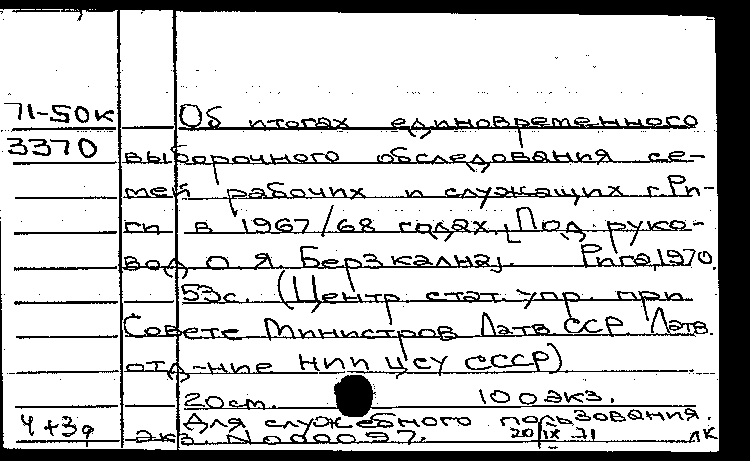 71-50к Об итогах единовременного
3370 выборочного обследования се-
мей рабочих и служащих г. Ри-
ги в 1967/68 годах. [Под руко-
вод. О. Я. Берзкална]. Рига, 1970.
53с. (Центр. стат. упр. при
Совете Министров Латв. ССР. Латв.
отд-ние НИИ ЦСУ СССР)
20 см. 100 экз.
Для служебного пользования.
4+3 экз. N 000097. 20/IX 71 ЛК